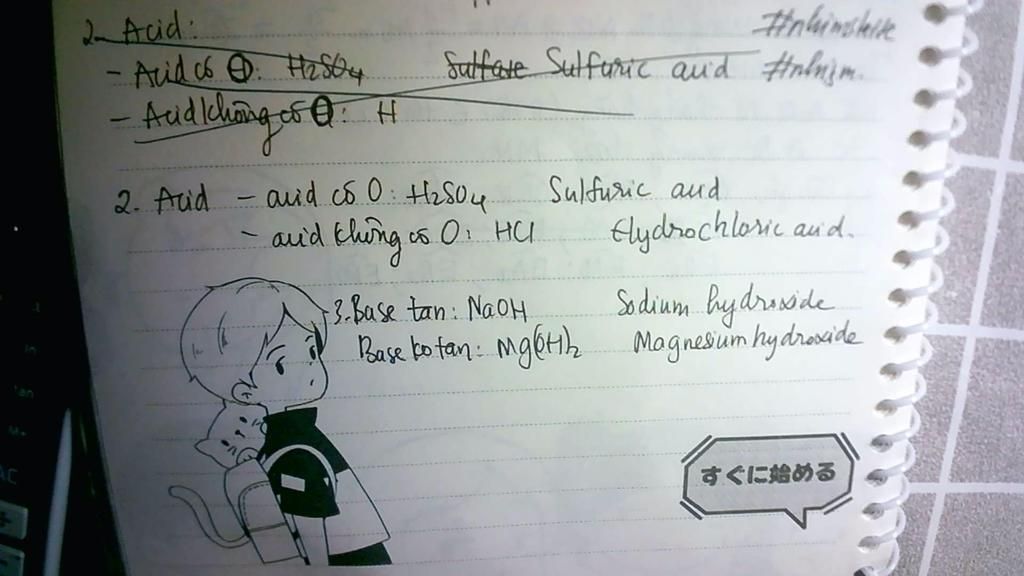 2. Acid:
- Acid có O: H₂SO₄ Sulfate Sulfuric acid
- Acid không có O: H
2. Acid - acid có O: H₂SO₄ Sulfuric acid
- acid không có O: HCl Hydrochloric acid.
3. Base tan: NaOH Sodium hydroxide
Base ko tan: Mg(OH)₂ Magnesium hydroxide
すぐに始める